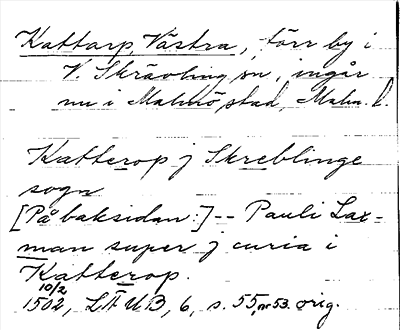 Kattarp, Västra, förr by i
V. Skrävlinge sn, ingår
nu i Malmö stad, Malm. l.
Katterop j Skreblinge
sogn
[På baksidan:] -- Pauli Lax-
man super j curia i
Katterop.
10/2
1502, LÄUB, 6, s. 55, nr 53. orig.